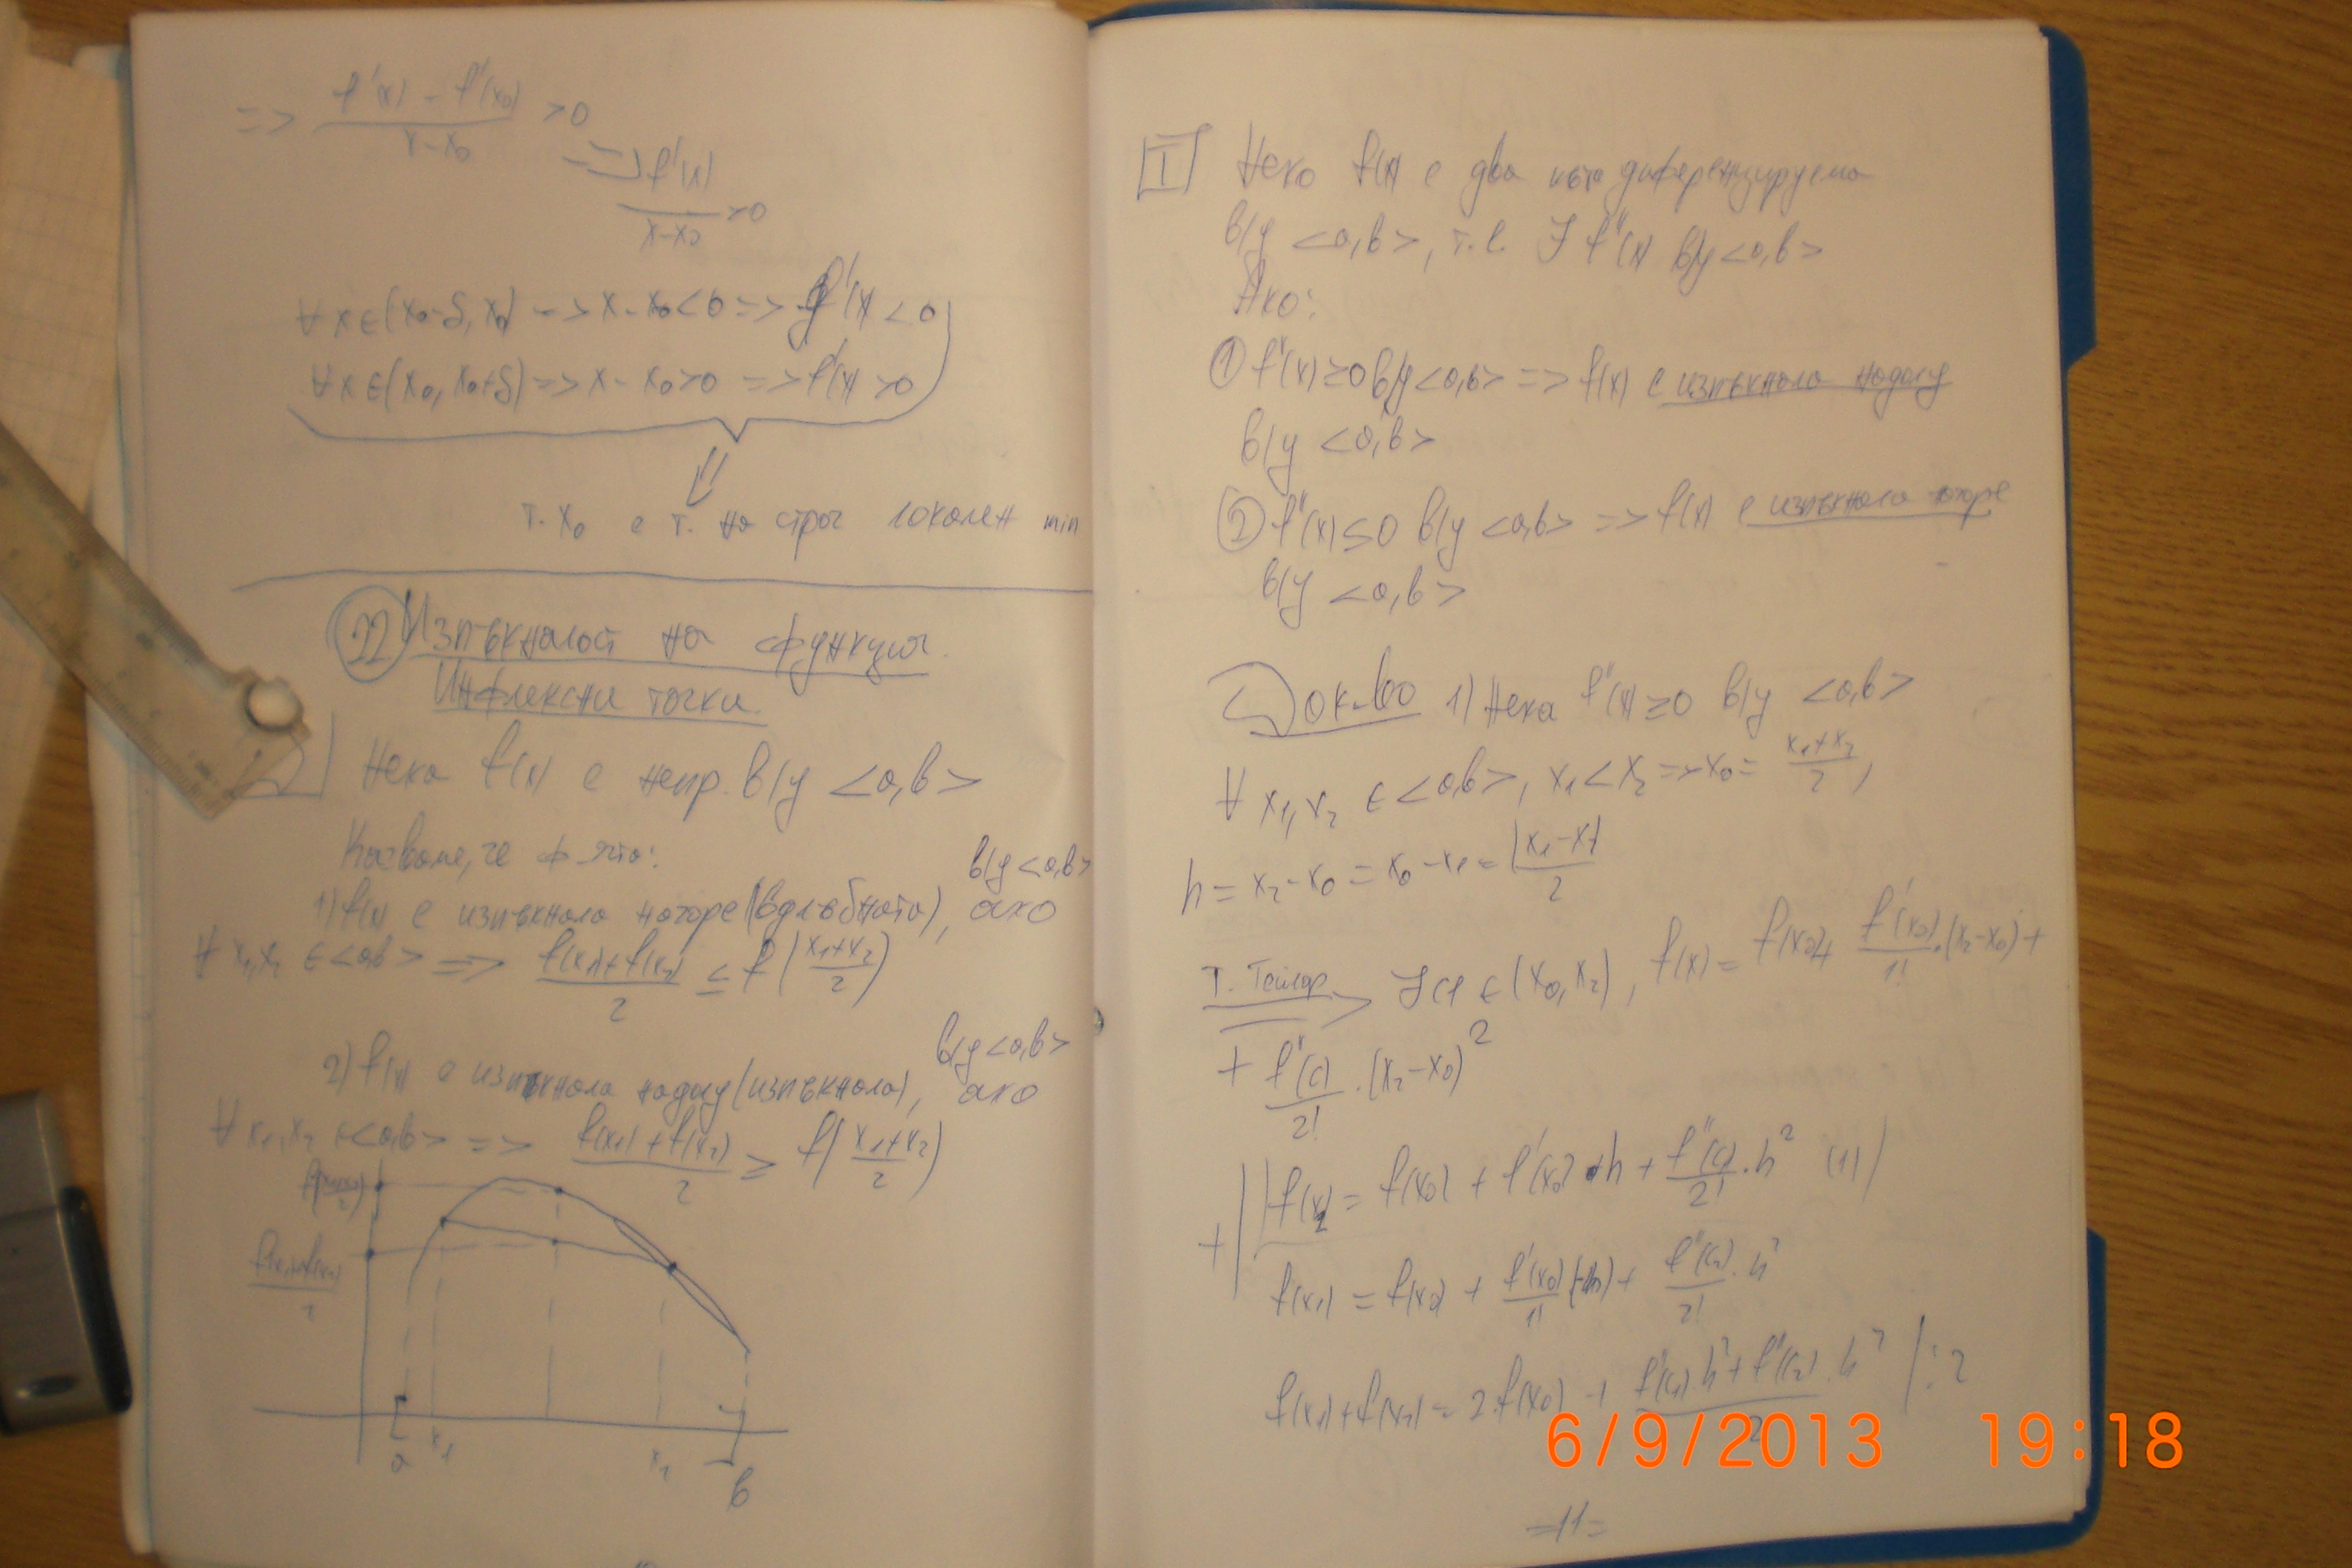 => (f'(x) - f'(x₀))/(x-x₀) >0
=> f'(x)/(x-x₀) >0
∀x∈(x₀-δ, x₀) => x-x₀<0 => f'(x)<0
∀x∈(x₀, x₀+δ) => x-x₀>0 => f'(x)>0
т. x₀ е т. на строг локален min
22 Изпъкналост на функция.
Инфлексни точки.
Д Нека f(x) е непр. в/у <a,b>
Казваме, че ф-ята:
в/у <a,b>
1) f(x) е изпъкнала нагоре (вдлъбната), ако
∀ x₁,x₂ ∈<a,b> => (f(x₁)+f(x₂))/2 ≤ f((x₁+x₂)/2)
в/у <a,b>
2) f(x) е изпъкнала надолу (изпъкнала), ако
∀ x₁,x₂ ∈<a,b> => (f(x₁)+f(x₂))/2 ≥ f((x₁+x₂)/2)
f((x₁+x₂)/2)
(f(x₁)+f(x₂))/2
a x₁ x₂ b
T Нека f(x) е два пъти диференцируема
в/у <a,b>, т.е. ∃ f''(x) в/у <a,b>
Ако:
① f''(x)≥0 в/у <a,b> => f(x) е изпъкнала надолу
в/у <a,b>
② f''(x)≤0 в/у <a,b> => f(x) е изпъкнала нагоре
в/у <a,b>
Док-во 1) Нека f''(x)≥0 в/у <a,b>
∀ x₁,x₂ ∈ <a,b>, x₁<x₂ => x₀ = (x₁+x₂)/2,
h = x₂-x₀ = x₀-x₁ = |x₁-x|/2
Т. Тейлор => ∃ c₁ ∈ (x₀,x₂), f(x) = f(x₀)+ f'(x₀)/1! .(x₂-x₀)+
+ f''(c)/2! .(x₂-x₀)²
f(x₂) = f(x₀) + f'(x₀).h + f''(c₁)/2! .h² (1)
+ f(x₁) = f(x₀) + f'(x₀)/1! (-h) + f''(c₂)/2! .h²
f(x₁)+f(x₂) = 2.f(x₀) + (f''(c₁)h²+f''(c₂).h²)/2 |:2
6/9/2013 19:18
=11=